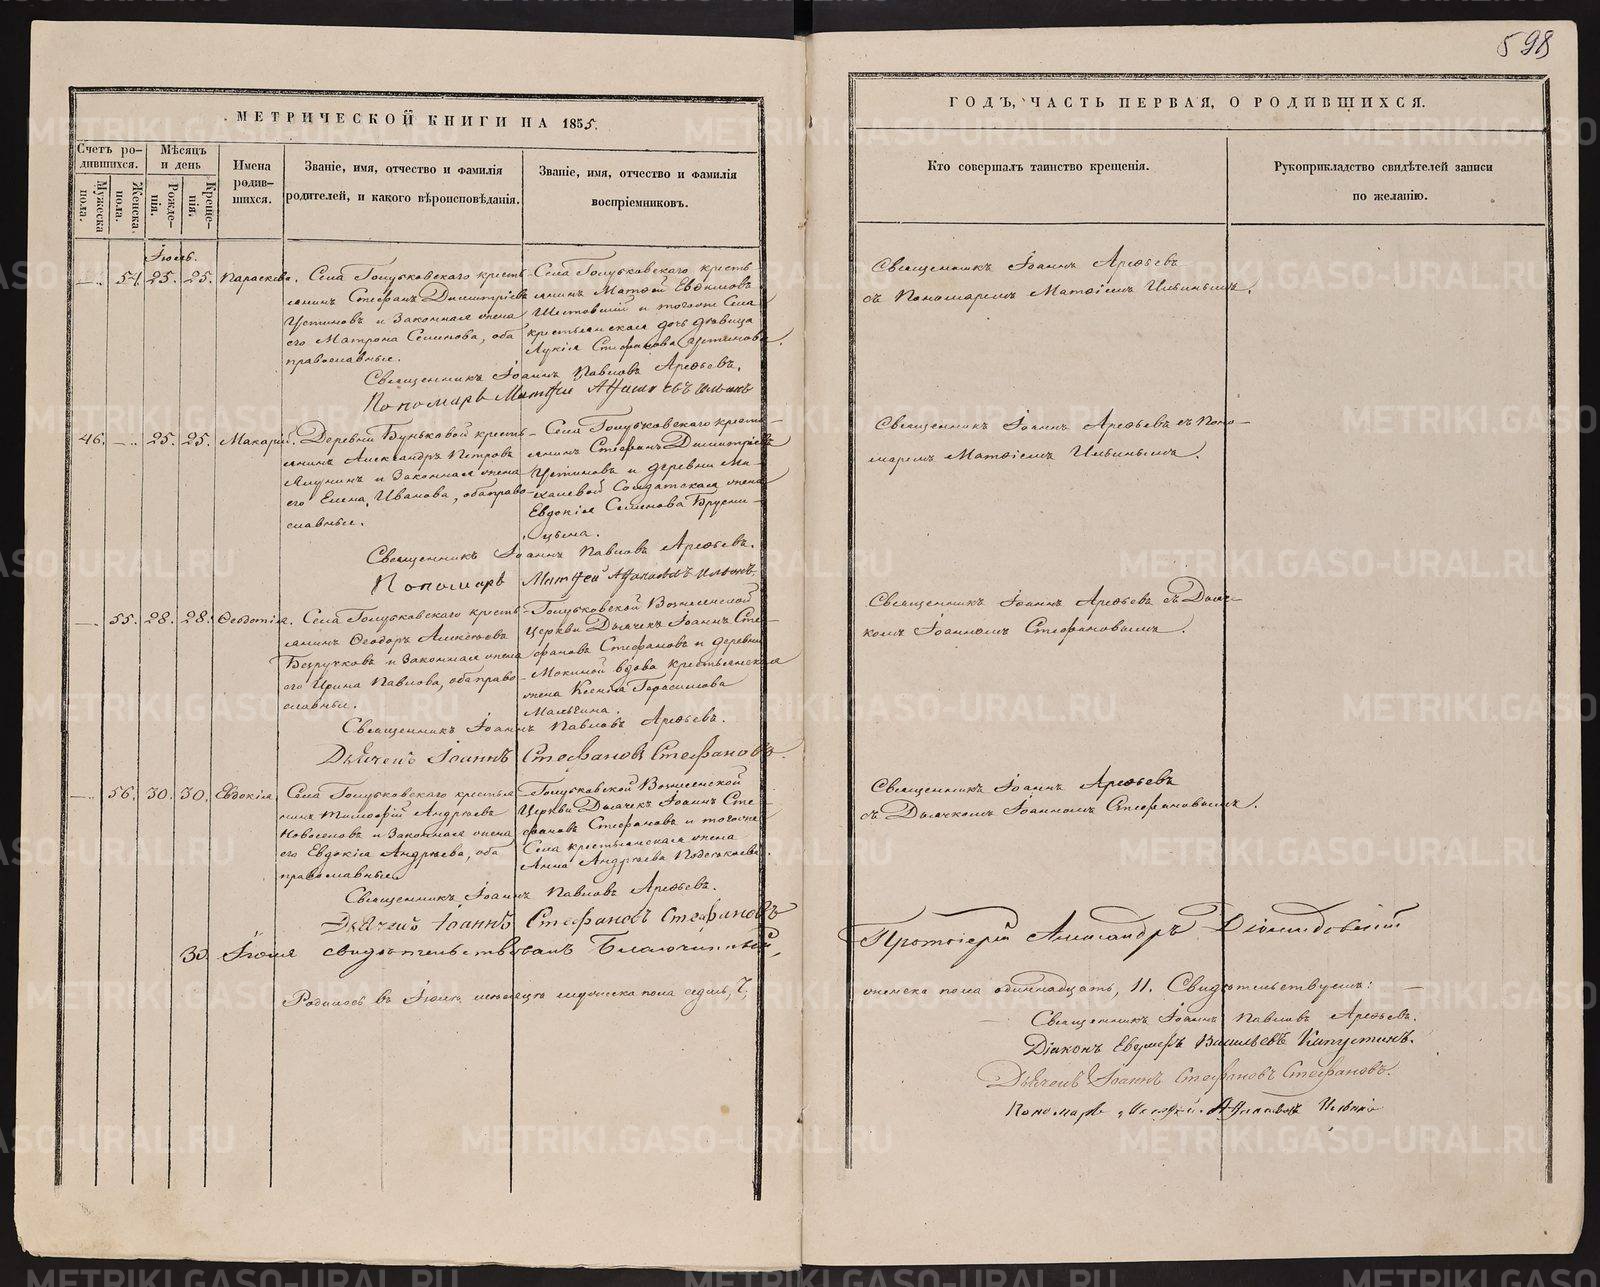 598
МЕТРИЧЕСКОЙ КНИГИ НА 1855.
ГОДЪ, ЧАСТЬ ПЕРВАЯ, О РОДИВШИХСЯ.
Счетъ родившихся.
Мужеска пола.
Женска пола.
Мѣсяцъ и день
Рожденія.
Крещенія.
Имена родившихся.
Званіе, имя, отчество и фамилія
родителей, и какого вѣроисповѣданія.
Званіе, имя, отчество и фамилія
воспріемниковъ.
Кто совершалъ таинство крещенія.
Рукоприкладство свидѣтелей записи
по желанію.
54. 25. 25. Параскева.
Села Голубковскаго кресть-
янинъ Стефанъ Димитріевъ
Устиновъ и законная жена
его Матрона Семенова, оба
православные.
Села Голубковскаго кресть
янинъ Матѳей Евдокимовъ
и тогоже Села
крестьянская дочь дѣвица
Лукія Стефанова Устинова.
Священникъ Іоаннъ Арефьевъ
съ Пономаремъ Матѳіемъ Ильинымъ.
Священникъ Іоаннъ Павловъ Арефьевъ.
Пономарь Матѳей
46. — 25. 25. Макарій.
Деревни Буньковой кресть-
янинъ Александръ Петровъ
и законная жена
его Елена Иванова, оба право-
славные.
Села Голубковскаго кресть-
янинъ Стефанъ Димитріевъ
Устиновъ и деревни Ма-
халевой Солдатская жена
Евдокія Семенова Брусни-
цына.
Священникъ Іоаннъ Арефьевъ съ Поно-
маремъ Матѳіемъ Ильинымъ.
Священникъ Іоаннъ Павловъ Арефьевъ.
Пономарь Матѳей
— 55. 28. 28. Ѳеодотія.
Села Голубковскаго кресть-
янинъ Ѳеодоръ Алексѣевъ
Безруковъ и законная жена
его Ирина Павлова, оба право-
славные.
Голубковской Вознесенской
Церкви Дьячекъ Іоаннъ Сте-
фановъ Стефановъ и деревни
Мокиной вдова крестьянская
жена Ксенія Герасимова
Священникъ Іоаннъ Арефьевъ съ Дьяч-
комъ Іоанномъ Стефановымъ.
Священникъ Іоаннъ Павловъ Арефьевъ.
Дьячекъ Іоаннъ Стефановъ Стефановъ.
— 56. 30. 30. Евдокія.
Села Голубковскаго крестья-
нинъ Тимофей Андреевъ
Новоселовъ и законная жена
его Евдокія Андреева, оба
православные.
Голубковской Вознесенской
Церкви Дьячекъ Іоаннъ Сте-
фановъ Стефановъ и тогоже
Села крестьянская жена
Анна Андреева
Священникъ Іоаннъ Арефьевъ
съ Дьячкомъ Іоанномъ Стефановымъ.
Священникъ Іоаннъ Павловъ Арефьевъ.
Дьячекъ Іоаннъ Стефановъ Стефановъ
30. свидѣтельствовалъ Благочинный,
Протоіерей Александръ
Родилось въ мѣсяцѣ мужеска пола седмь, 7,
женска пола одиннадцать, 11. Свидѣтельствуемъ:
Священникъ Іоаннъ Павловъ Арефьевъ.
Діаконъ Васильевъ Капустинъ.
Дьячекъ Іоаннъ Стефановъ Стефановъ.
Пономарь
METRIKI.GASO-URAL.RU